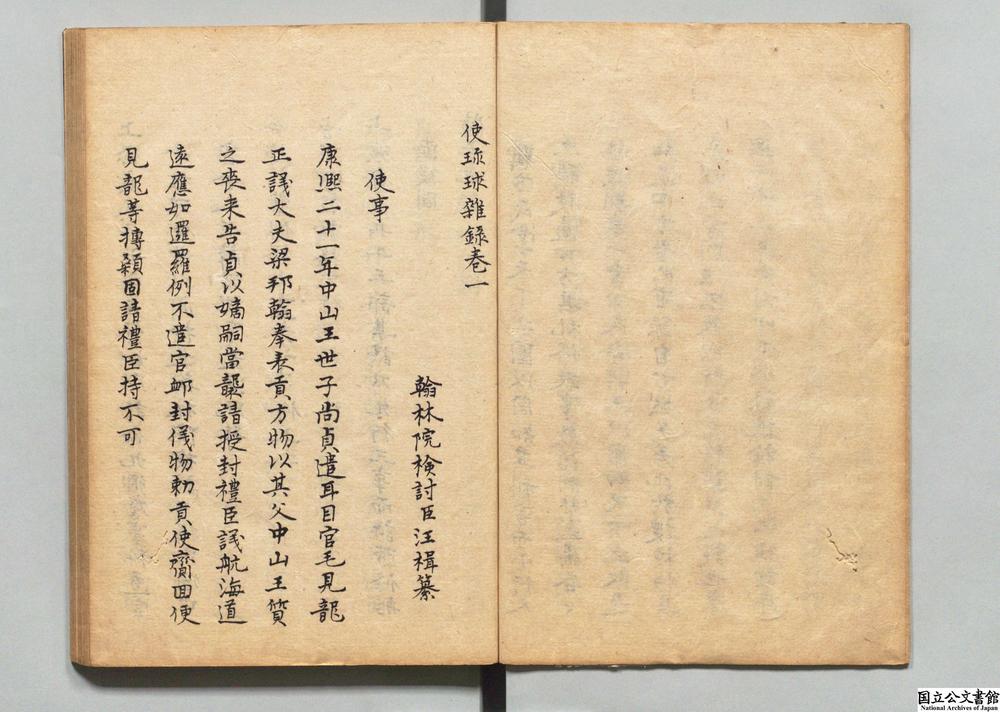 使琉球雜錄巻一
翰林院檢討臣汪楫纂
使事
康熙二十一年中山王世子尚貞遣耳目官毛見龍
正議大夫梁邦翰奉表貢方物以其父中山王質
之喪来告貞以嫡嗣當襲請授封禮臣議航海道
遠應如暹羅例不遣官䘏封儀物勅貢使齎囬便
見龍等摶顙固請禮臣持不可
国立公文書館
National Archives of Japan